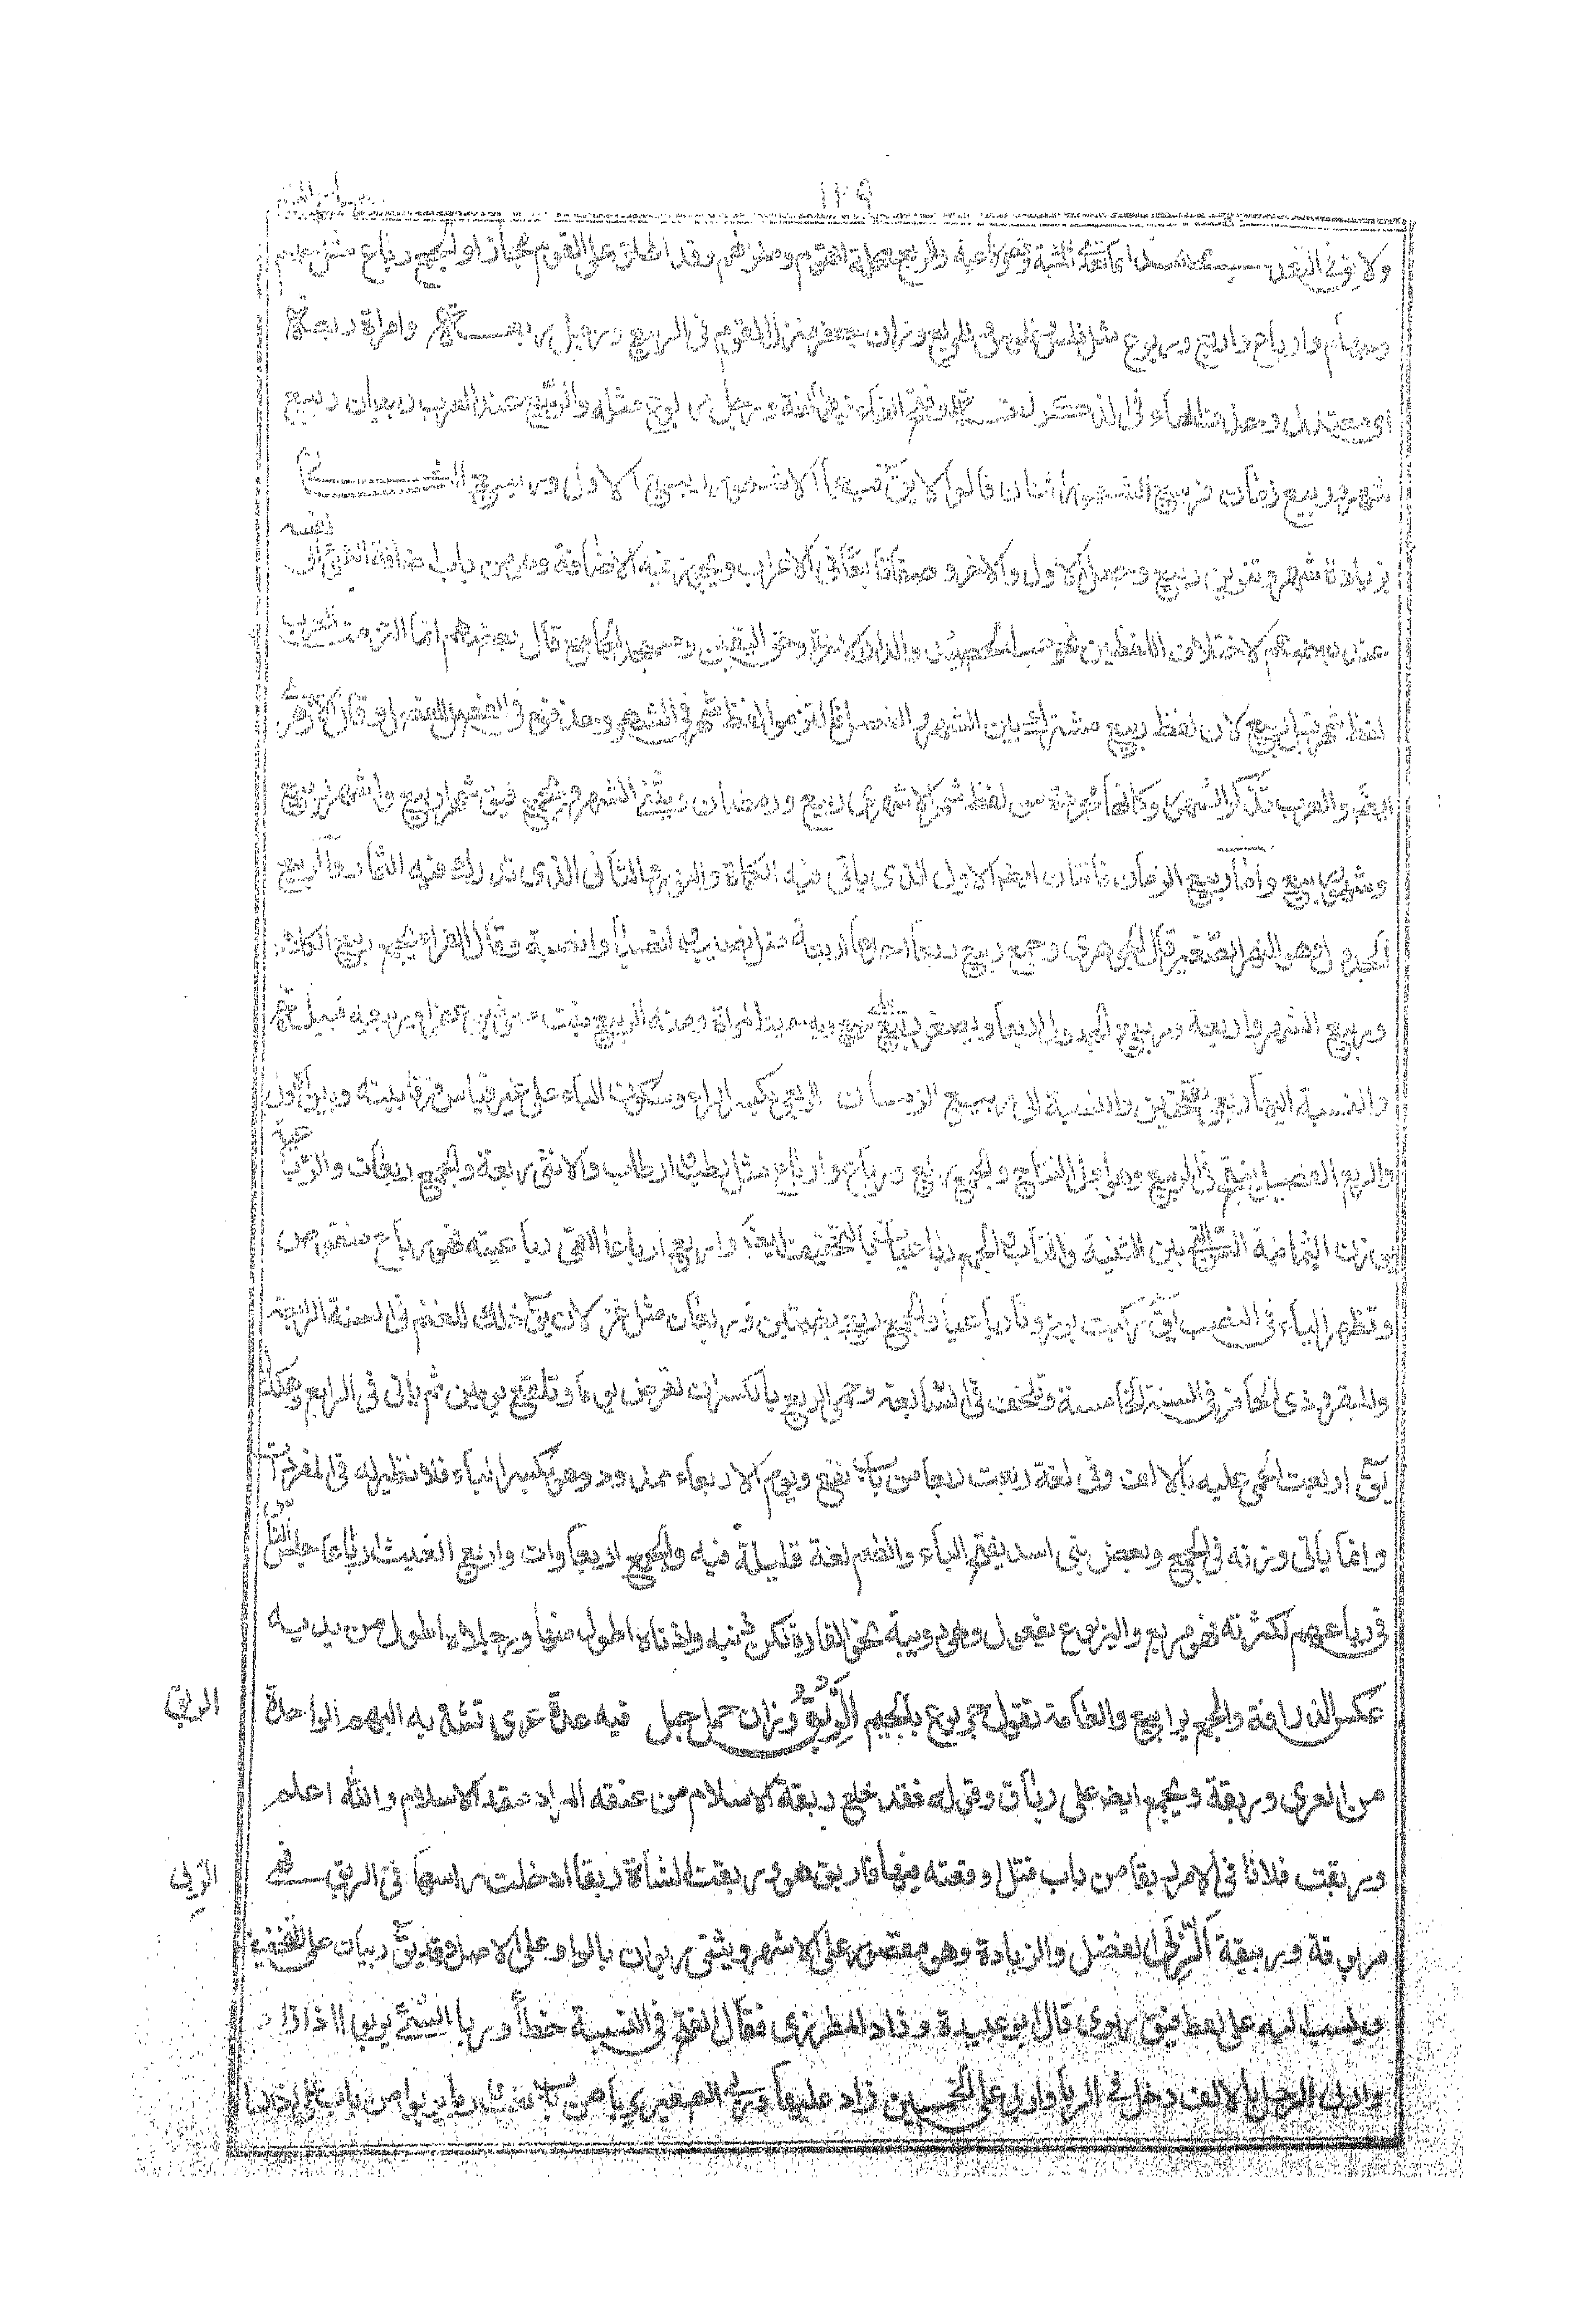 ١٢٩
ولا يوفى النقد والربع محلة القوم ومنزلهم وقد اطلق على القوم مجازا والجمع رباع مثل سهم
وسهام وارباع واربع وربوع مثل فلوس والمربع وزان جعفر منزل القوم فى الربيع ورجل ربعة وامراة ربعة
اى معتدل وحذف الهاء فى المذكر لغة وفتح الباء فيهما لغة ورجل مربوع مثله والربيع عند العرب ربيعان ربيع
شهور وربيع زمان فربيع الشهور اثنان قالوا لا يقّ فيهما الا شهر ربيع الاول وشهر ربيع الاخر
بزيادة شهر وتنوين ربيع وجعل الاول والاخر وصفا تابعا فى الاعراب ويجوز فيه الاضافة وهو من باب اضافة الشئ الى نفسه
عند بعضهم لاختلاف اللفظين نحو حب الحصيد والدار الاخرة وحق اليقين ومسجد الجامع قال بعضهم انما التزمت العرب
لفظ شهر قبل ربيع لان لفظ ربيع مشترك بين الشهر والفصل فالتزموا لفظ شهر فى الشهر وحذفوه فى الفصل للفصل وقال الازهرى
ايضا والعرب تذكر الشهور كلها مجردة من لفظ شهر الا شهرى ربيع ورمضان ويثنى الشهر ويجمع فيق شهرا ربيع واشهر ربيع
وشهور ربيع واما ربيع الزمان فاثنان ايضا الاول الذى ياتى فيه الكماة والنور والثانى الذى تدرك فيه الثمار والربيع
الجدول وهو النهر الصغير قال الجوهرى وجمع ربيع اربعاء واربعة مثل نصيب وانصباء وانصبة وقال الفراء يجمع ربيع الكلاء
وربيع الشهور اربعة وربيع الجدول اربعاء ويصغر ربيع على ربيع وبه سميت المراة ومنه الربيع بنت معوذ بن عفراء وربيعة قبيلة
والنسبة اليها ربعى بفتحتين والنسبة الى ربيع الزمان ربعى بكسر الراء وسكون الباء على غير قياس فرقا بينه وبين الاول
والربع الفصيل ينتج فى الربيع وهو اول النتاج والجمع رباع وارباع مثل رطب وارطاب والانثى ربعة والجمع ربعات والرباعية
بوزن الثمانية السن التى بين الثنية والناب والجمع رباعيات بالتخفيف ايضا واربع ارباعا القى رباعيته فهو رباع منقوص
وتظهر الياء فى النصب يقّ ركبت برذونا رباعيا والجمع ربع بضمتين وربعان مثل غزلان يقّ ذلك للغنم فى السنة الرابعة
وللبقر وذى الحافر فى السنة الخامسة وللخف فى السابعة وحمى الربع بالكسر ان تعرض يوما وتقلع يومين ثم ياتى فى الرابع وهكذا
يقّ اربعت الحمى عليه بالالف وفى لغة ربعت ربعا من باب نفع ويوم الاربعاء ممدود وهو بكسر الباء فلا نظير له فى المفردات
وانما ياتى وزنه فى الجمع وبعض بنى اسد يفتح الباء والضم لغة قليلة فيه والجمع اربعاوات واربع الغيث ارباعا حبس الناس
فى رباعهم لكثرته فهو مربع واليربوع يفعول وهو دويبة نحو الفارة لكن ذنبه واذناه اطول منها ورجلاه اطول من يديه
عكس الزرافة والجمع يرابيع والعامة تقول جربوع بالجيم الرِّبْقُ وزان حمل حبل فيه عدة عرى تشد به البهم الواحدة
الربق
من العرى وربقة ويجمع ايضا على رباق وقوله فقد خلع ربقة الاسلام من عنقه المراد عقد الاسلام والله اعلم
وربقت فلانا فى الامر ربقا من باب قتل اوقعته فيه فارتبق هو وربقت الشاة ربقا ادخلت راسها فى الربق فهى
الربى
مربوقة وربيقة الرِّبَى الفضل والزيادة وهو مقصور على الاشهر ويثنى ربوان بالواو على الاصل وقد يقّ ربيان على التخفيف
وينسب اليه على لفظه فيق ربوى قال ابو عبيدة وزاد المطرزى فقال الفتح فى النسبة خطأ وربا الشئ يربوا اذا زاد
واربى الرجل بالالف دخل فى الربا واربى على الخمسين زاد عليها وربى الصغير يربى من باب تعب وربا يربوا من باب علا اذا نشا